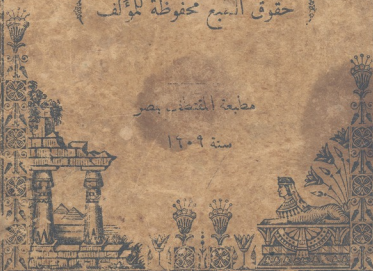 حقوق الطبع محفوظة للمؤلف
مطبعة المقتطف بمصر
سنة ١٩٠٩